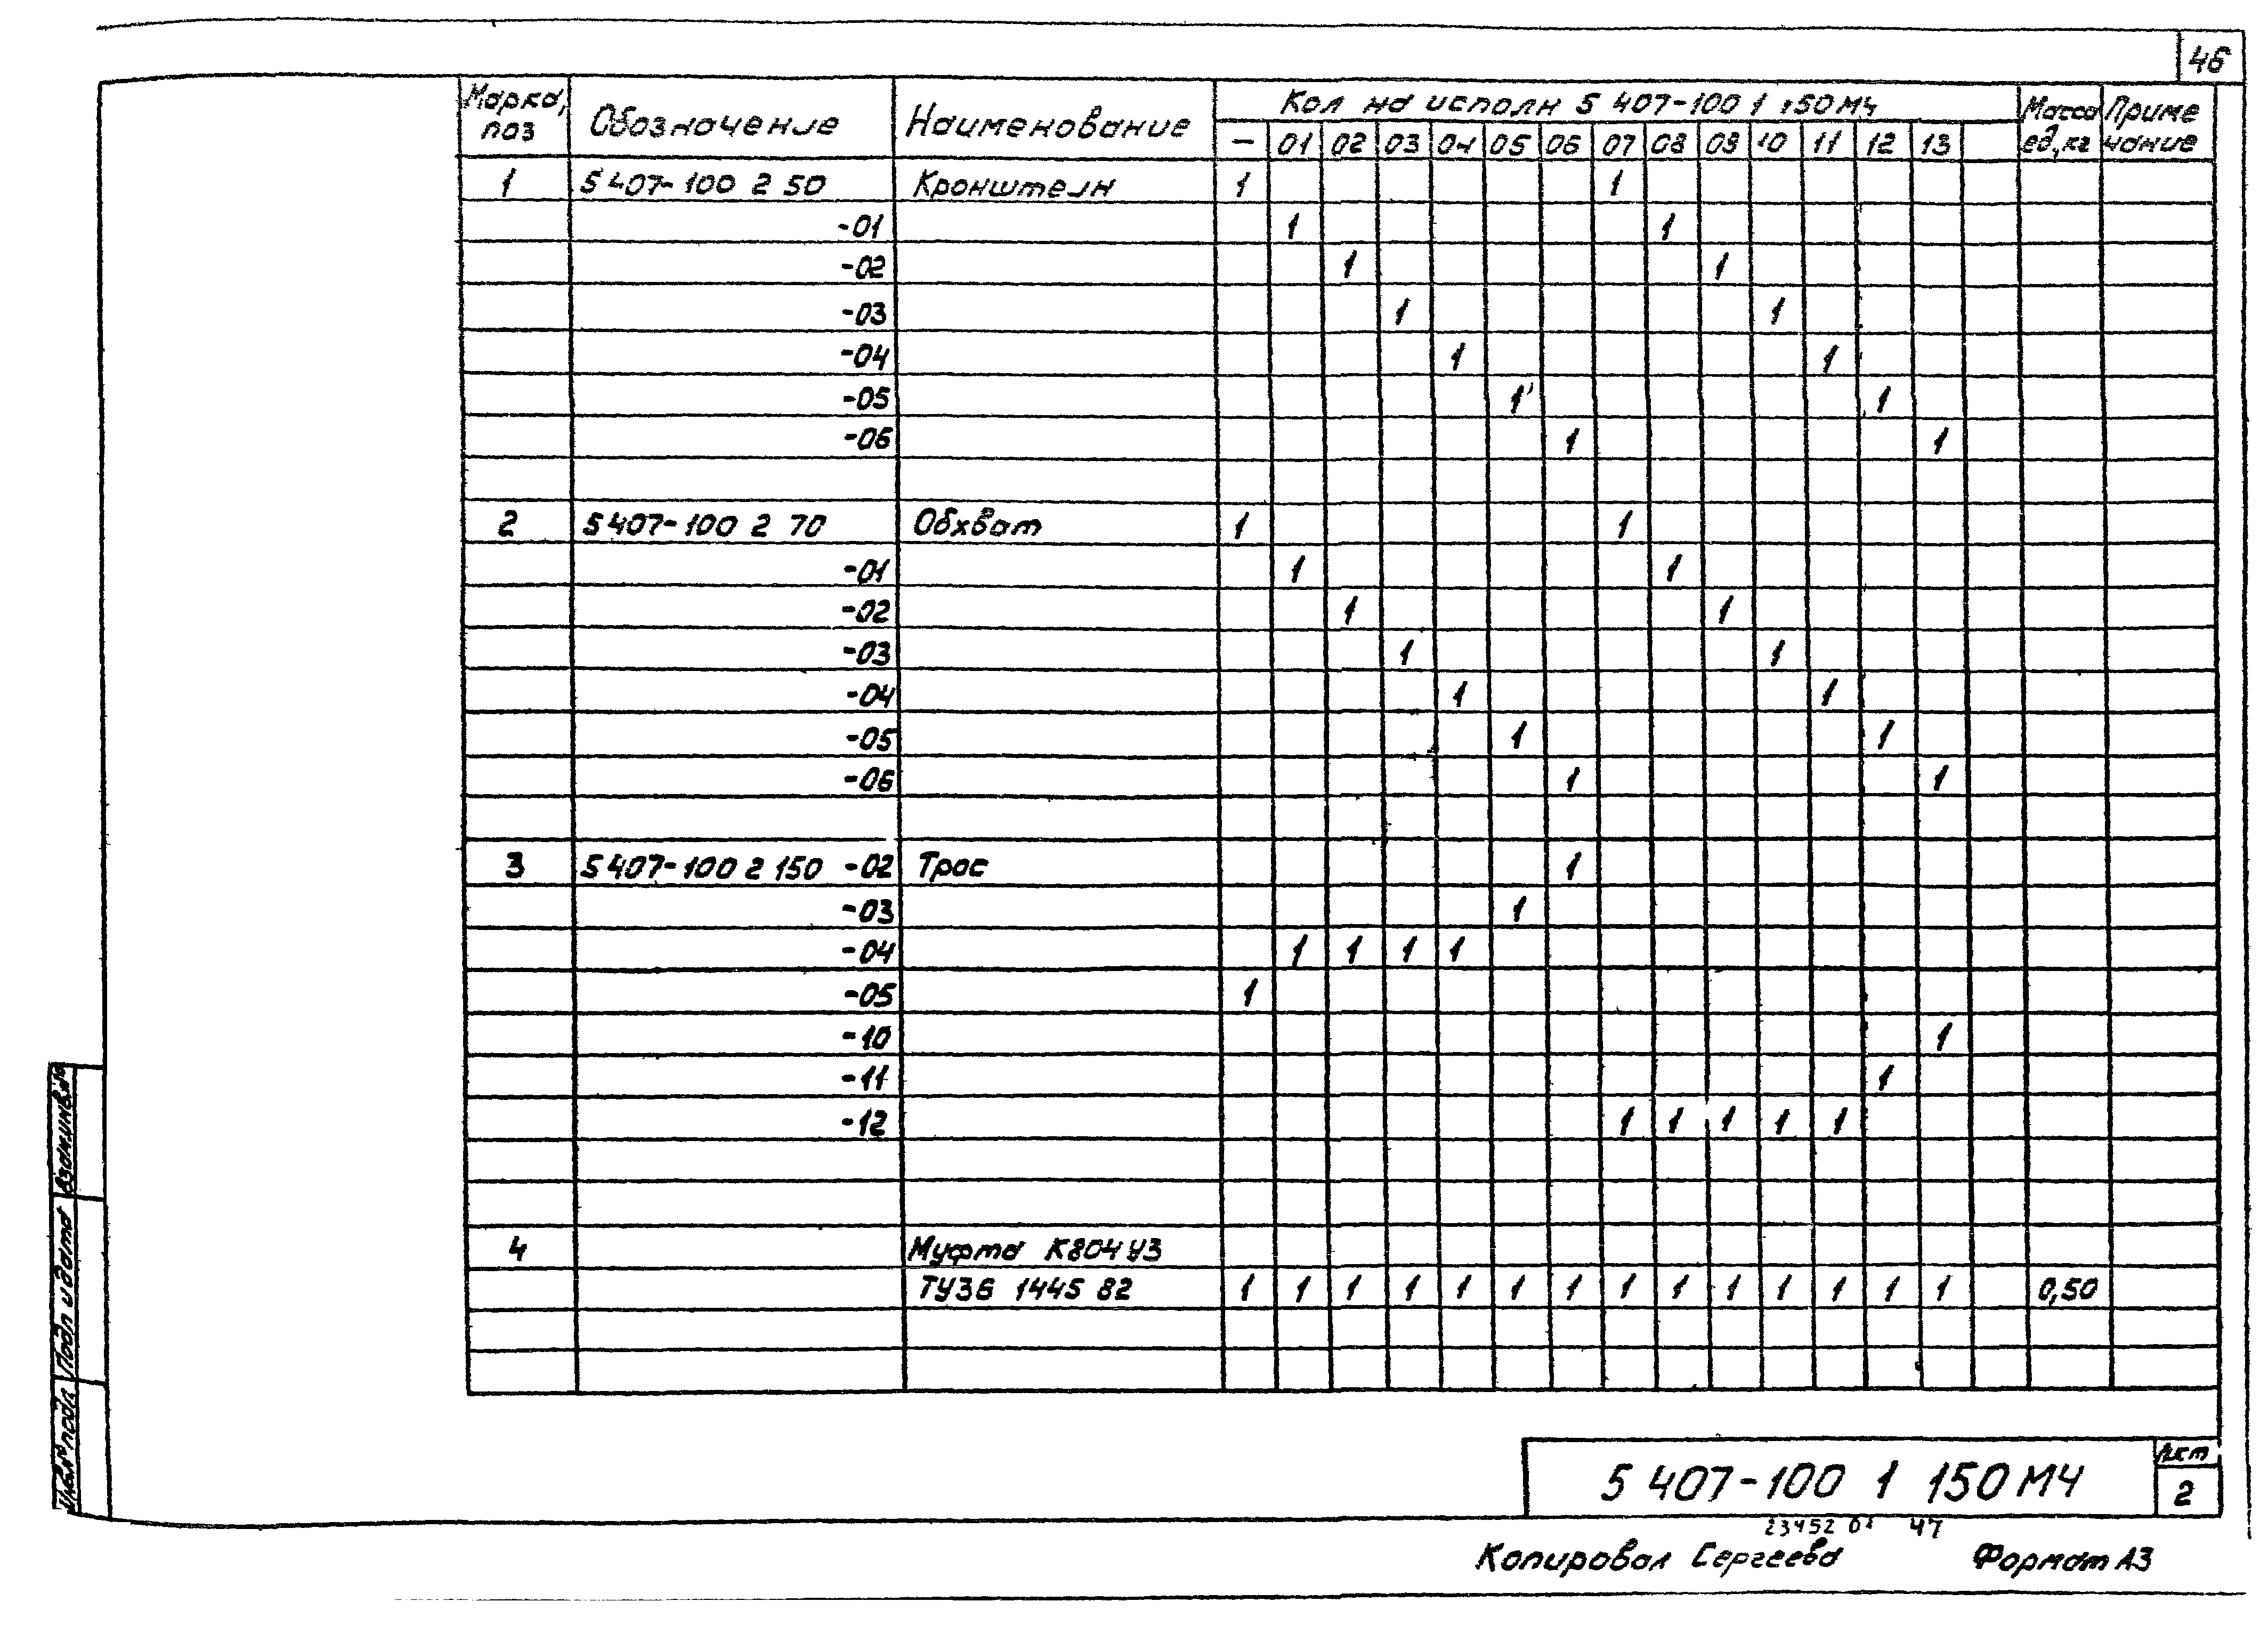 46
Марка, поз Обозначение Наименование Кол на исполн 5 407-100 1 150МЧ Масса ед,кг Приме чание
— 01 02 03 04 05 06 07 08 09 10 11 12 13
1 5 407-100 2 50 Кронштейн 1 1
-01 1 1
-02 1 1
-03 1 1
-04 1 1
-05 1 1
-06 1 1
2 5 407-100 2 70 Обхват 1 1
-01 1 1
-02 1 1
-03 1 1
-04 1 1
-05 1 1
-06 1 1
3 5 407-100 2 150 -02 Трос 1
-03 1
-04 1 1 1 1
-05 1
-10 1
-11 1
-12 1 1 1 1 1
4 Муфта К804 У3
ТУ36 1445 82 1 1 1 1 1 1 1 1 1 1 1 1 1 1 0,50
Взам.инв.№
Подп и дата
Инв.№ подл
5 407-100 1 150 МЧ
Лист
2
23452 01 47
Копировал Сергеева Формат А3